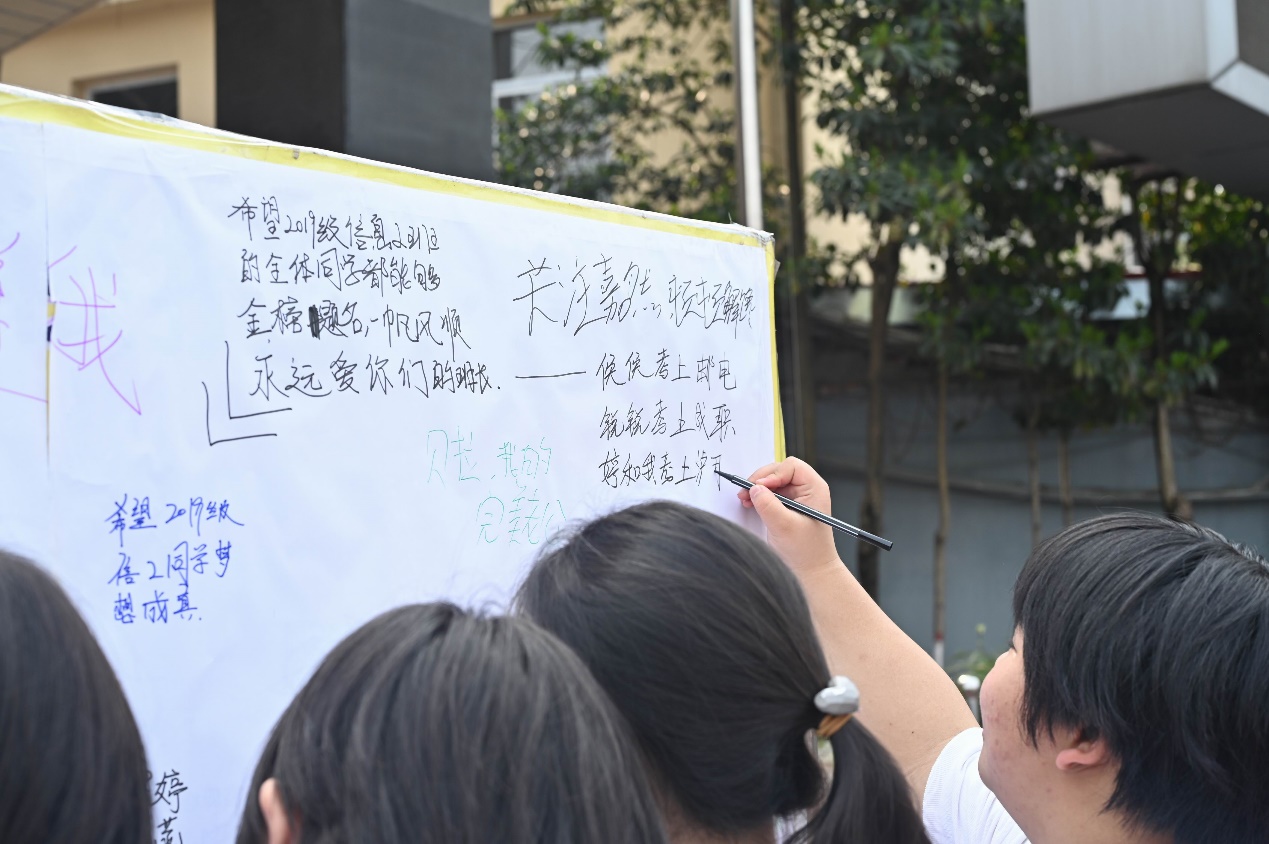 我
希望2019级信息2班
的全体同学都能够
金榜题名,一帆风顺
永远爱你们的
关注嘉然..,顿顿解馋
——候候考上邮电
锐锐考上成职
婷和我考上泸
贝拉,我的
希望2019级
信2同学梦
想成真.
婷